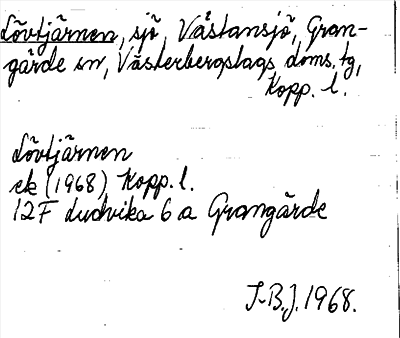 Lövtjärnen, sjö, Västansjö, Gran-
gärde sn, Västerbergslags doms. tg,
Kopp. l.
Lövtjärnen
ek (1968) Kopp. l.
12F Ludvika 6 a Grangärde
I-B.J. 1968.